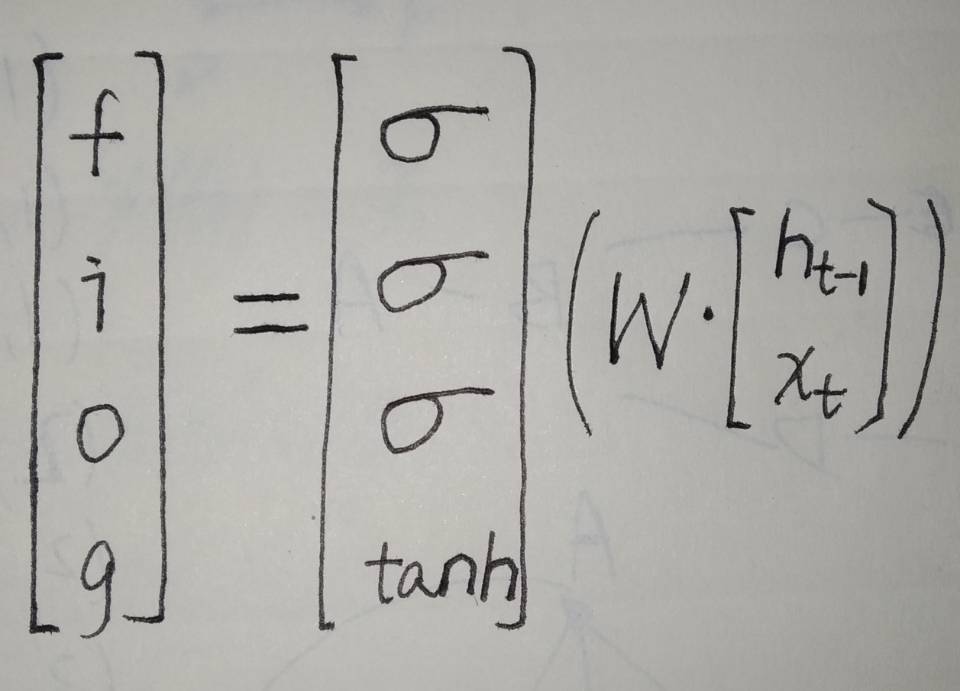 [f i o g] = [σ σ σ tanh] (W · [h_{t-1} x_t])